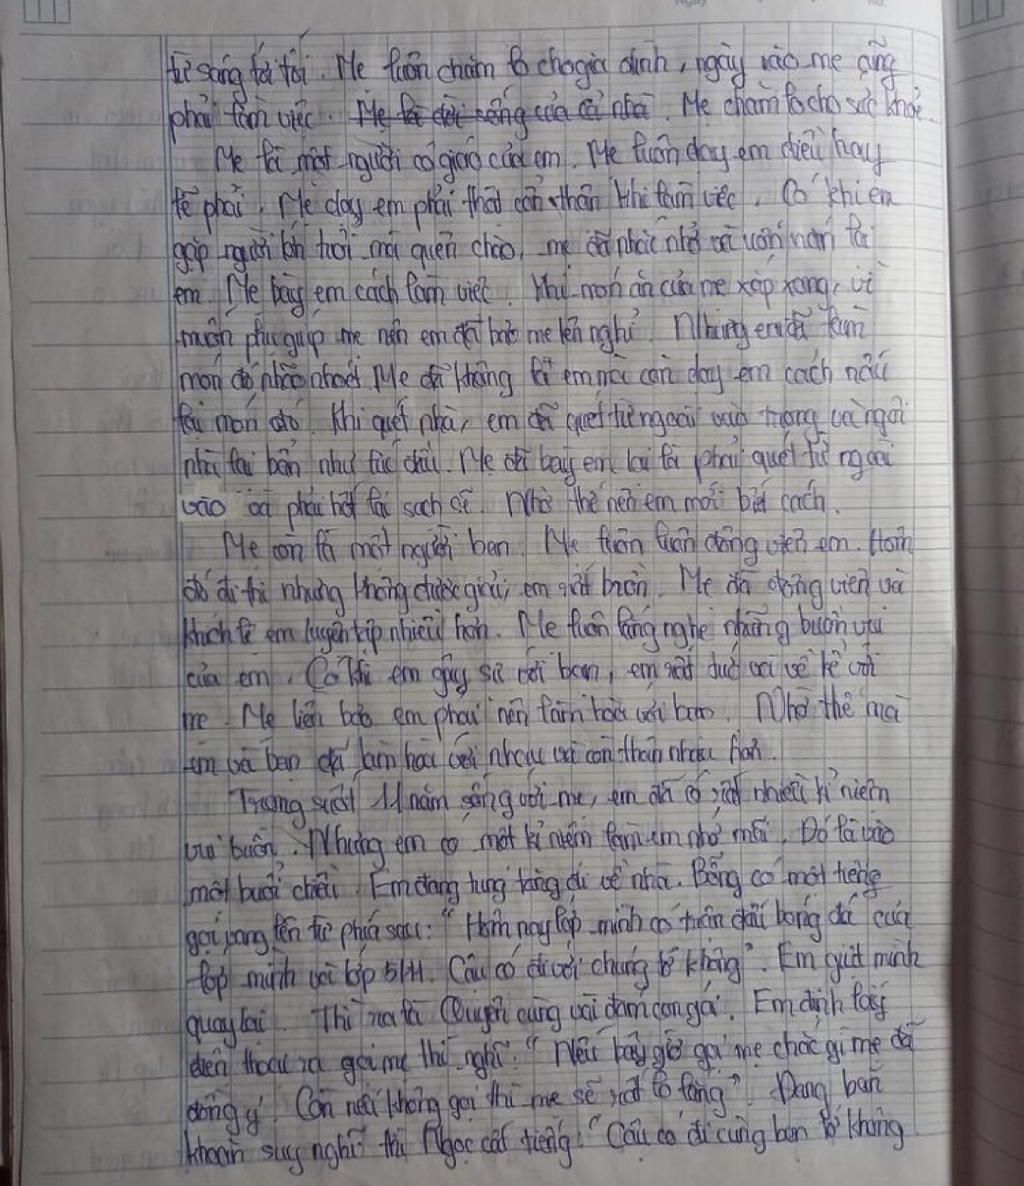 từ sáng tới tối. Mẹ luôn chăm lo cho gia đình, ngày nào mẹ cũng
phải làm việc. Mẹ là đời sống của cả nhà. Mẹ chăm lo cho sức khỏe.
Mẹ là một người cô giáo của em. Mẹ luôn dạy em điều hay
lẽ phải. Mẹ dạy em phải thật cẩn thận khi làm việc. Có khi em
gặp người lớn tuổi mà quên chào, mẹ đã nhắc nhở và uốn nắn lại
em. Mẹ bày em cách làm việc. Khi món ăn của mẹ sắp xong, vì
muốn phụ giúp mẹ nên em đã bảo mẹ lên nghỉ. Nhưng em đã làm
món đó nhão nhoét. Mẹ đã không la em mà còn dạy em cách nấu
lại món đó. Khi quét nhà, em đã quét từ ngoài vào trong và ngôi
nhà lại bẩn như lúc đầu. Mẹ đã bày em lại là phải quét từ ngoài
vào và phải hốt lại sạch sẽ. Nhờ thế nên em mới biết cách.
Mẹ còn là một người bạn. Mẹ luôn luôn động viên em. Hôm
đó đi thi nhưng không được giải, em rất buồn. Mẹ đã động viên và
khích lệ em luyện tập nhiều hơn. Mẹ luôn lắng nghe những buồn vui
của em. Có khi em gây sự với bạn, em rất tức và về kể với
mẹ. Mẹ liền bảo em phải nên làm hòa với bạn. Nhờ thế mà
em và bạn đã làm hòa với nhau và còn thân nhau hơn.
Trong suốt 11 năm sống với mẹ, em đã có rất nhiều kỉ niệm
vui buồn. Nhưng em có một kỉ niệm làm em nhớ mãi. Đó là vào
một buổi chiều. Em đang tung tăng đi về nhà. Bỗng có một tiếng
gọi vang lên từ phía sau: "Hôm nay lớp mình có trận đấu bóng đá của
lớp mình với lớp 5/4. Cậu có đi với chúng tớ không". Em giật mình
quay lại. Thì ra là Quyên cùng vài đám con gái. Em định lấy
điện thoại ra gọi mẹ thì nghĩ: "Nếu bây giờ gọi mẹ chắc gì mẹ đã
đồng ý. Còn nếu không gọi thì mẹ sẽ rất lo lắng". Đang băn
khoăn suy nghĩ thì Ngọc cất tiếng: "Cậu có đi cùng bọn tớ không